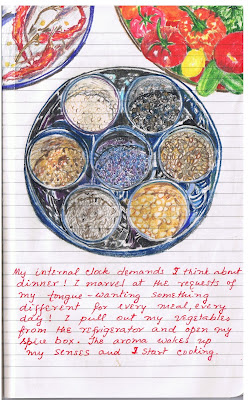 My internal clock demands I think about
dinner! I marvel at the requests of
my tongue - wanting something
different for every meal, every
day! I pull out my vegetables
from the refrigerator and open my
spice box. The aroma wakes up
my senses and I start cooking.